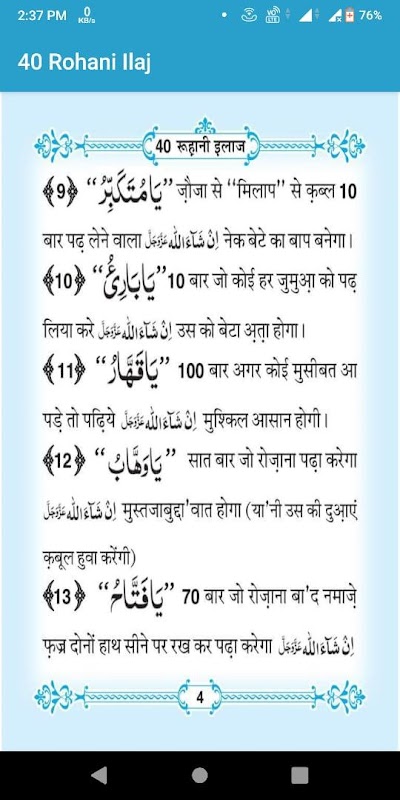 2:37 PM 0 KB/s VO LTE 76%
40 Rohani Ilaj
40 रूह़ानी इलाज
﴾9﴿ “يَامُتَكَبِّرُ” ज़ौजा से “मिलाप” से क़ब्ल 10
बार पढ़ लेने वाला اِنْ شَآءَ اللّٰه عَزَّوَجَلَّ नेक बेटे का बाप बनेगा।
﴾10﴿ “يَابَارِئُ” 10 बार जो कोई हर जुमुआ़ को पढ़
लिया करे اِنْ شَآءَ اللّٰه عَزَّوَجَلَّ उस को बेटा अ़त़ा होगा।
﴾11﴿ “يَاقَهَّارُ” 100 बार अगर कोई मुसीबत आ
पड़े तो पढ़िये اِنْ شَآءَ اللّٰه عَزَّوَجَلَّ मुश्किल आसान होगी।
﴾12﴿ “يَاوَهَّابُ” सात बार जो रोज़ाना पढ़ा करेगा
اِنْ شَآءَ اللّٰه عَزَّوَجَلَّ मुस्तजाबुद्दा'वात होगा (या'नी उस की दुआ़एं
क़बूल हुवा करेंगी)
﴾13﴿ “يَافَتَّاحُ” 70 बार जो रोज़ाना बा'द नमाज़े
फ़ज्र दोनों हाथ सीने पर रख कर पढ़ा करेगा اِنْ شَآءَ اللّٰه عَزَّوَجَلَّ
4